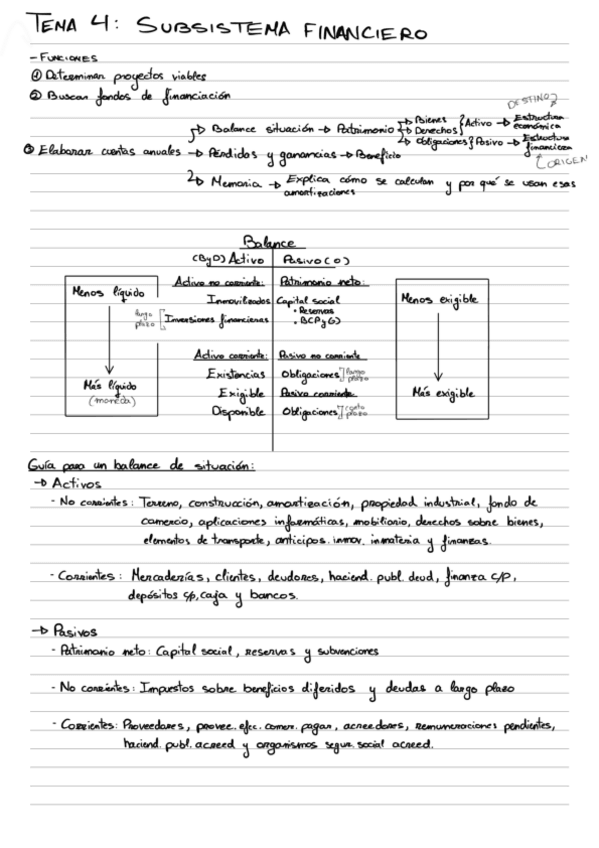 TEMA 4: SUBSISTEMA FINANCIERO
- FUNCIONES
① Determinar proyectos viables
② Buscar fondos de financiación
DESTINO
Balance situación → Patrimonio → Bienes } Activo → Estructura económica
→ Derechos
→ Obligaciones } Pasivo → Estructura financiera
ORIGEN
③ Elaborar cuentas anuales → Pérdidas y ganancias → Beneficio
Memoria → Explica cómo se calculan y por qué se usan esas
amortizaciones
Balance
(ByD) Activo Pasivo (O)
Activo no corriente: Patrimonio neto:
Menos líquido
Inmovilizados Capital social
Menos exigible
• Reservas
largo plazo [ Inversiones financieras • BCPyG)
Activo corriente: Pasivo no corriente
Existencias Obligaciones ] largo plazo
Más líquido
(moneda)
Exigible Pasivo corriente
Más exigible
Disponible Obligaciones ] corto plazo
Guía para un balance de situación:
→ Activos
- No corrientes: Terreno, construcción, amortización, propiedad industrial, fondo de
comercio, aplicaciones informáticas, mobiliario, derechos sobre bienes,
elementos de transporte, anticipos. inmov. inmateria y finanzas.
- Corrientes: Mercaderías, clientes, deudores, haciend. publ. deud, finanza c/p,
depósitos c/p, caja y bancos.
→ Pasivos
- Patrimonio neto: Capital social, reservas y subvenciones
- No corrientes: Impuestos sobre beneficios diferidos y deudas a largo plazo
- Corrientes: Proveedores, provee. efec. comer. pagar, acreedores, remuneraciones pendientes,
haciend. publ. acreed y organismos segur. social acreed.